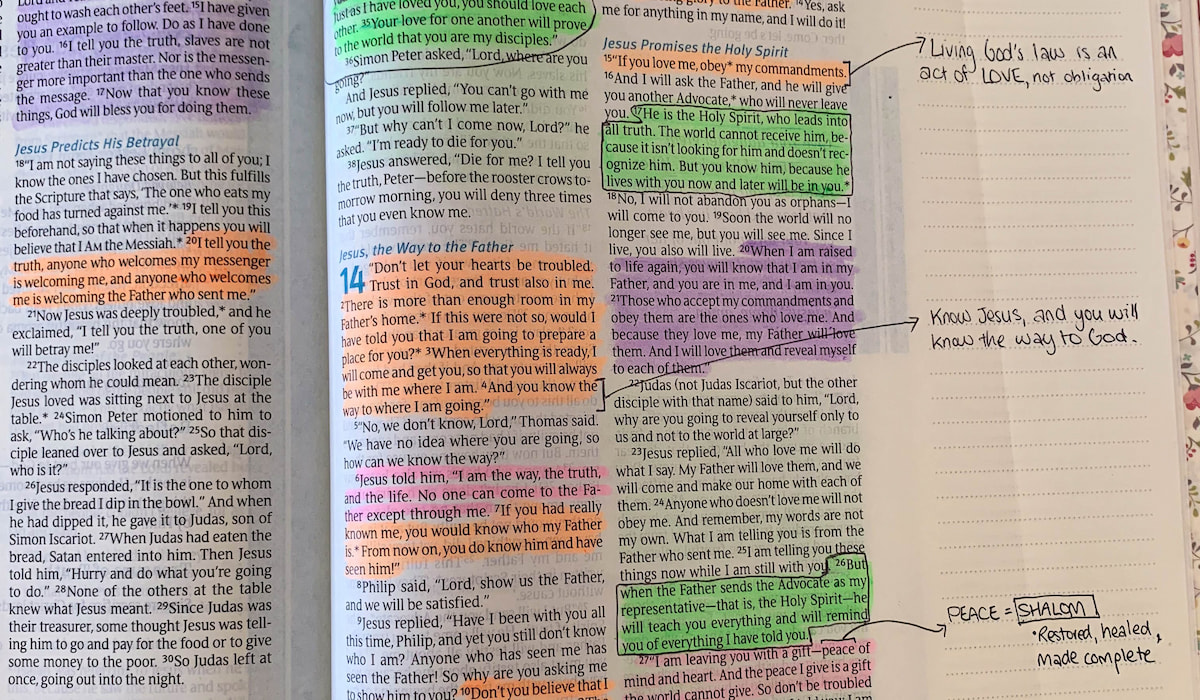 Lord and
ought to wash each other's feet. 15I have given
you an example to follow. Do as I have done
to you. 16I tell you the truth, slaves are not
greater than their master. Nor is the messen-
ger more important than the one who sends
the message. 17Now that you know these
things, God will bless you for doing them.
Jesus Predicts His Betrayal
18"I am not saying these things to all of you; I
know the ones I have chosen. But this fulfills
the Scripture that says, 'The one who eats my
food has turned against me.'* 19I tell you this
beforehand, so that when it happens you will
believe that I AM the Messiah.* 20I tell you the
truth, anyone who welcomes my messenger
is welcoming me, and anyone who welcomes
me is welcoming the Father who sent me."
21Now Jesus was deeply troubled,* and he
exclaimed, "I tell you the truth, one of you
will betray me!"
22The disciples looked at each other, won-
dering whom he could mean. 23The disciple
Jesus loved was sitting next to Jesus at the
table.* 24Simon Peter motioned to him to
ask, "Who's he talking about?" 25So that dis-
ciple leaned over to Jesus and asked, "Lord,
who is it?"
26Jesus responded, "It is the one to whom
I give the bread I dip in the bowl." And when
he had dipped it, he gave it to Judas, son of
Simon Iscariot. 27When Judas had eaten the
bread, Satan entered into him. Then Jesus
told him, "Hurry and do what you're going
to do." 28None of the others at the table
knew what Jesus meant. 29Since Judas was
their treasurer, some thought Jesus was tell-
ing him to go and pay for the food or to give
some money to the poor. 30So Judas left at
once, going out into the night.
Just as I have loved you, you should love each
other. 35Your love for one another will prove
to the world that you are my disciples."
36Simon Peter asked, "Lord, where are you
going?"
And Jesus replied, "You can't go with me
now, but you will follow me later."
37"But why can't I come now, Lord?" he
asked. "I'm ready to die for you."
38Jesus answered, "Die for me? I tell you
the truth, Peter—before the rooster crows to-
morrow morning, you will deny three times
that you even know me.
Jesus, the Way to the Father
14 "Don't let your hearts be troubled.
Trust in God, and trust also in me.
2There is more than enough room in my
Father's home.* If this were not so, would I
have told you that I am going to prepare a
place for you?* 3When everything is ready, I
will come and get you, so that you will always
be with me where I am. 4And you know the
way to where I am going."
5"No, we don't know, Lord," Thomas said.
"We have no idea where you are going, so
how can we know the way?"
6Jesus told him, "I am the way, the truth,
and the life. No one can come to the Fa-
ther except through me. 7If you had really
known me, you would know who my Father
is.* From now on, you do know him and have
seen him!"
8Philip said, "Lord, show us the Father,
and we will be satisfied."
9Jesus replied, "Have I been with you all
this time, Philip, and yet you still don't know
who I am? Anyone who has seen me has
seen the Father! So why are you asking me
to show him to you? 10Don't you believe that I
glory to the Father. 14Yes, ask
me for anything in my name, and I will do it!
Jesus Promises the Holy Spirit
15"If you love me, obey* my commandments.
16And I will ask the Father, and he will give
you another Advocate,* who will never leave
you. 17He is the Holy Spirit, who leads into
all truth. The world cannot receive him, be-
cause it isn't looking for him and doesn't rec-
ognize him. But you know him, because he
lives with you now and later will be in you.*
18No, I will not abandon you as orphans—I
will come to you. 19Soon the world will no
longer see me, but you will see me. Since I
live, you also will live. 20When I am raised
to life again, you will know that I am in my
Father, and you are in me, and I am in you.
21Those who accept my commandments and
obey them are the ones who love me. And
because they love me, my Father will love
them. And I will love them and reveal myself
to each of them."
22Judas (not Judas Iscariot, but the other
disciple with that name) said to him, "Lord,
why are you going to reveal yourself only to
us and not to the world at large?"
23Jesus replied, "All who love me will do
what I say. My Father will love them, and we
will come and make our home with each of
them. 24Anyone who doesn't love me will not
obey me. And remember, my words are not
my own. What I am telling you is from the
Father who sent me. 25I am telling you these
things now while I am still with you. 26But
when the Father sends the Advocate as my
representative—that is, the Holy Spirit—he
will teach you everything and will remind
you of everything I have told you.
27"I am leaving you with a gift—peace of
mind and heart. And the peace I give is a gift
the world cannot give. So don't be troubled
Living God's law is an
act of LOVE, not obligation
Know Jesus, and you will
know the way to God.
PEACE = SHALOM
• Restored, healed,
made complete